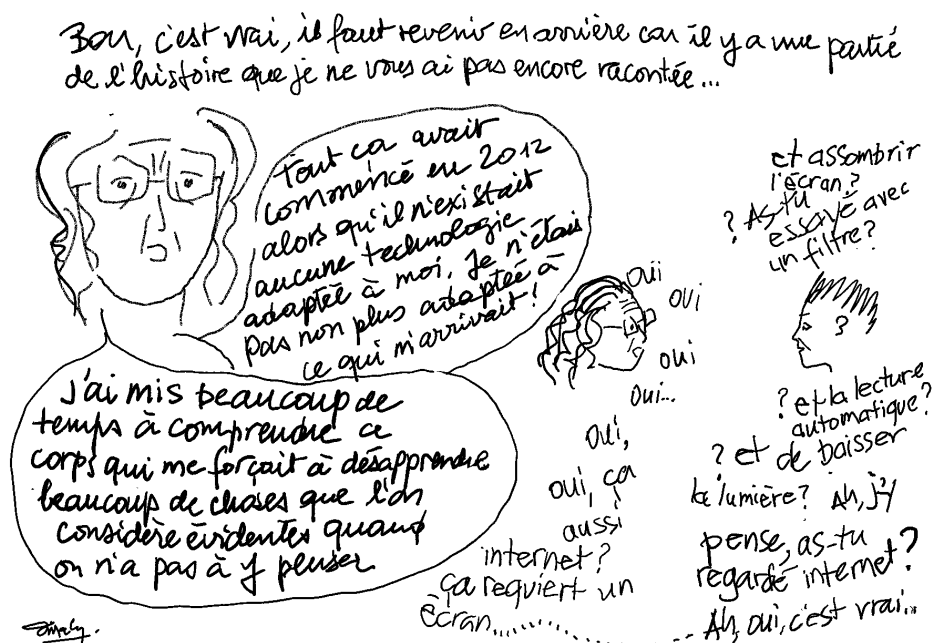 Bon, c'est vrai, il faut revenir en arrière car il y a une partie
de l'histoire que je ne vous ai pas encore racontée...
Tout ça avait
commencé en 2012
alors qu'il n'existait
aucune technologie
adaptée à moi. Je n'étais
pas non plus adaptée à
ce qui m'arrivait !
J'ai mis beaucoup de
temps à comprendre ce
corps qui me forçait à désapprendre
beaucoup de choses que l'on
considère évidentes quand
on n'a pas à y penser
et assombrir
l'écran ?
? As-tu
essayé avec
un filtre ?
?
oui
oui
oui
oui...
? et la lecture
automatique ?
? et de baisser
la lumière ? Ah, j'y
pense, as-tu
regardé internet ?
Oui,
oui, ça
aussi
internet ?
ça requiert un
écran...
Ah, oui, c'est vrai...